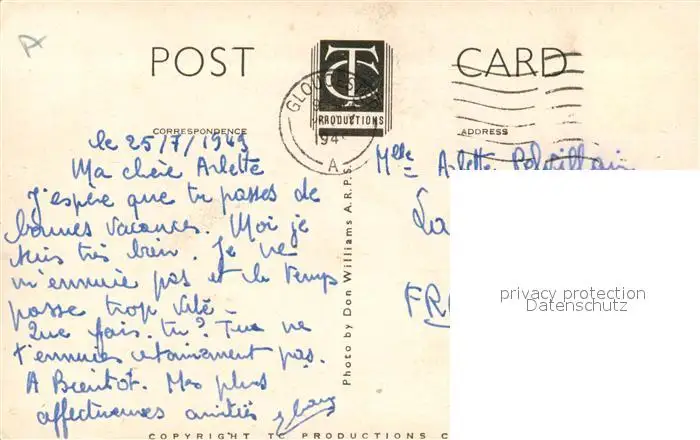 A
POST CARD
TC
PRODUCTIONS
GLOUCES
194
A
CORRESPONDENCE
ADDRESS
le 25/7/1949
Ma chère Arlette
J'espère que tu passes de
bonnes vacances. Moi je
suis très bien. Je ne
m'ennuie pas et le temps
passe trop vite -
Que fais-tu? Tu ne
t'ennuies certainement pas.
A Bientot. Mes plus
affectueuses amitiés
Mlle Arlette
La
FR
privacy protection
Datenschutz
Photo by Don Williams A.R.P.S.
COPYRIGHT TC PRODUCTIONS C